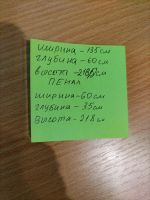 ширина - 135 см
глубина - 60 см
высота - 218 см
ПЕНАЛ
ширина - 60 см
глубина - 35 см
высота - 218 см